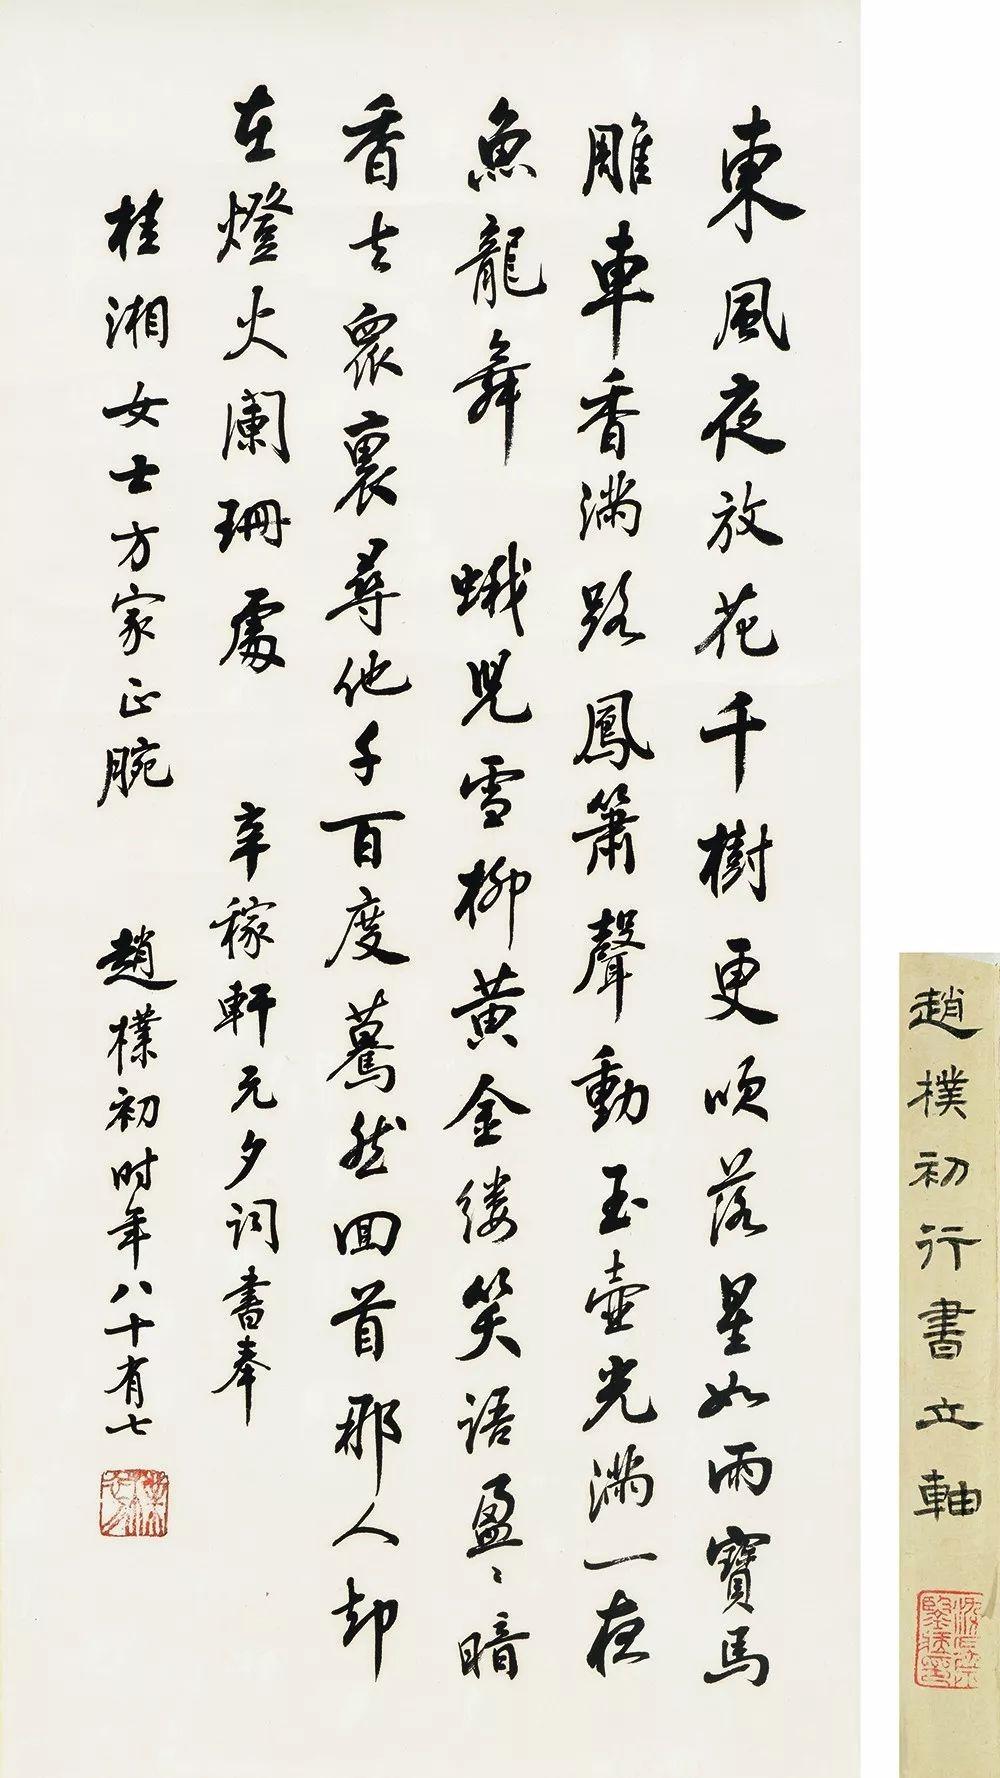 東風夜放花千樹更吹落星如雨寶馬
雕車香滿路鳳簫聲動玉壺光滿一夜
魚龍舞 蛾兒雪柳黃金縷笑語盈〻暗
香去眾裏尋他千百度驀然囬首那人却
在燈火闌珊處 辛稼軒元夕詞書奉
桂湘女士方家正腕 趙樸初时年八十有七
趙樸初行書立軸